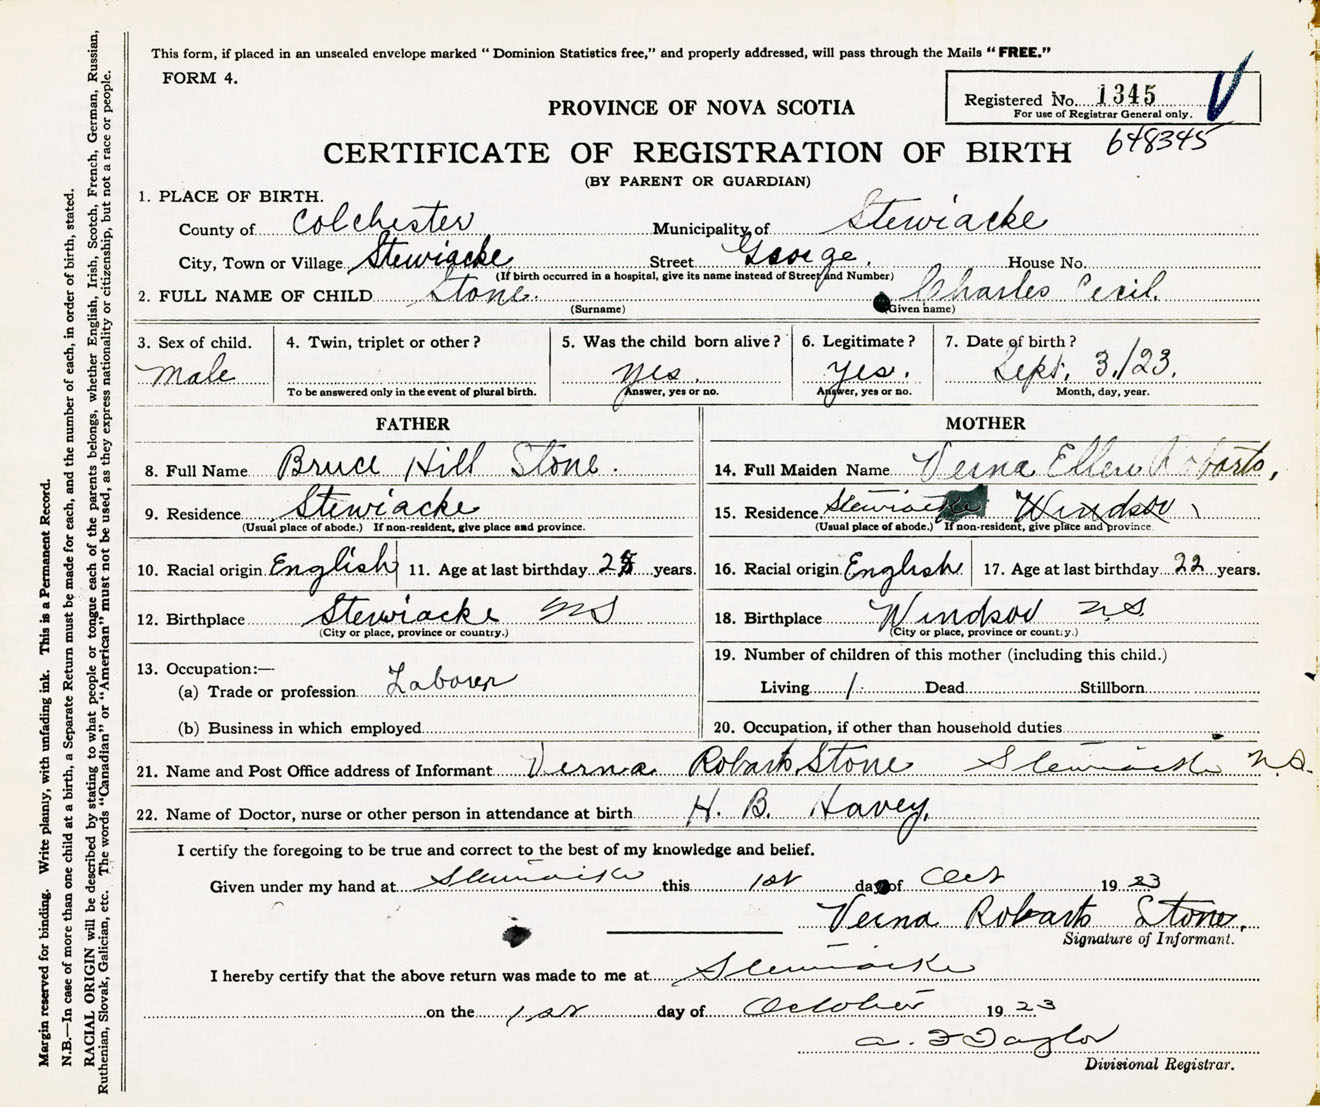 This form, if placed in an unsealed envelope marked " Dominion Statistics free," and properly addressed, will pass through the Mails " FREE."
FORM 4.
Registered No. 1345
For use of Registrar General only.
PROVINCE OF NOVA SCOTIA
648345
CERTIFICATE OF REGISTRATION OF BIRTH
(BY PARENT OR GUARDIAN)
1. PLACE OF BIRTH.
County of Colchester Municipality of Stewiacke
City, Town or Village Stewiacke Street George. House No.
(If birth occurred in a hospital, give its name instead of Street and Number)
2. FULL NAME OF CHILD Stone. Charles Cecil.
(Surname) (Given name)
3. Sex of child. 4. Twin, triplet or other? 5. Was the child born alive? 6. Legitimate? 7. Date of birth?
Male yes. yes. Sept. 3/23.
To be answered only in the event of plural birth. Answer, yes or no. Answer, yes or no. Month, day, year.
FATHER MOTHER
8. Full Name Bruce Hill Stone. 14. Full Maiden Name Verna Ellen Robarts,
9. Residence Stewiacke 15. Residence Stewiacke Windsor
(Usual place of abode.) If non-resident, give place and province. (Usual place of abode.) If non-resident, give place and province.
10. Racial origin English 11. Age at last birthday years. 16. Racial origin English 17. Age at last birthday 22 years.
12. Birthplace Stewiacke NS 18. Birthplace Windsor N.S.
(City or place, province or country.) (City or place, province or country.)
13. Occupation:— 19. Number of children of this mother (including this child.)
(a) Trade or profession Laborer Living 1 Dead Stillborn
(b) Business in which employed 20. Occupation, if other than household duties
21. Name and Post Office address of Informant Verna Robarts Stone Stewiacke N.S.
22. Name of Doctor, nurse or other person in attendance at birth H. B. Havey.
I certify the foregoing to be true and correct to the best of my knowledge and belief.
Given under my hand at Stewiacke this 1st day of Oct 1923
Verna Robarts Stone.
Signature of Informant.
I hereby certify that the above return was made to me at Stewiacke
on the 1st day of October 1923
A. F Taylor
Divisional Registrar.
Margin reserved for binding. Write plainly, with unfading ink. This is a Permanent Record.
N.B.—In case of more than one child at a birth, a Separate Return must be made for each, and the number of each, in order of birth, stated.
RACIAL ORIGIN will be described by stating to what people or tongue each of the parents belongs, whether English, Irish, Scotch, French, German, Russian,
Ruthenian, Slovak, Galician, etc. The words "Canadian" or "American" must not be used, as they express nationality or citizenship, but not a race or people.